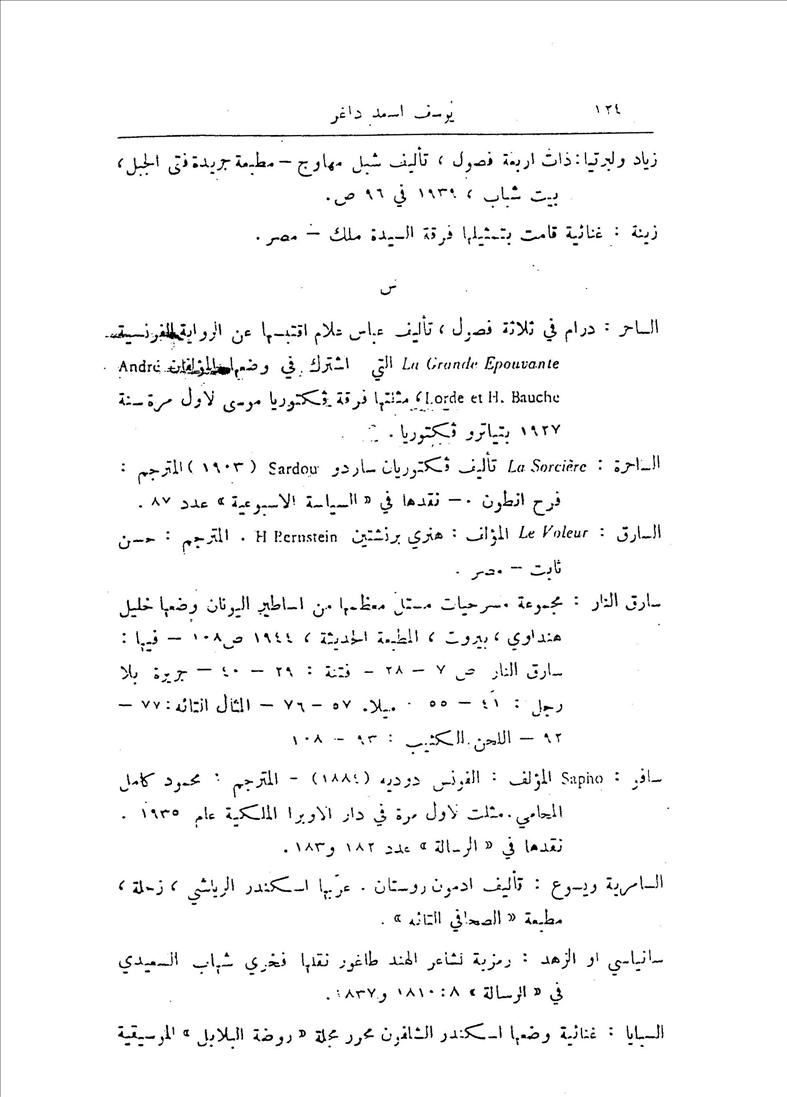 ١٢٤ يوسف اسعد داغر
زياد ولبرتيا: ذات اربعة فصول ، تأليف شبل مهاوج – مطبعة جريدة فتى الجبل ،
بيت شباب ، ١٩٣٩ في ٩٦ ص.
زينة : غنائية قامت بتمثيلها فرقة السيدة ملك – مصر .
س
الساحر : درام في ثلاثة فصول ، تأليف عباس علام اقتبسها عن الرواية الفرنسية
La Grande Epouvante التي اشترك في وضعها المؤلفان André
Lorde et H. Bauche مثلتها فرقة ڤكتوريا موسى لاول مرة سنة
١٩٢٧ بتياترو ڤكتوريا .
الساحرة : La Sorcière تأليف ڤكتوريان ساردو Sardou (١٩٠٣) المترجم :
فرح انطون ٠– نقدها في « السياسة الاسبوعية » عدد ٨٧ .
السارق : Le Voleur المؤلف : هنري برنشتين H Bernstein . المترجم : حسن
ثابت – مصر .
سارق النار : مجموعة مسرحيات مستل معظمها من اساطير اليونان وضعها خليل
هنداوي ، بيروت ، المطبعة الحديثة ، ١٩٤٤ ص١٠٨ – فيها :
سارق النار ص ٧ – ٢٨ – فتنة : ٢٩ – ٤٠ – جزيرة بلا
رجل : ٤١ – ٥٥ . ميلاد ٥٧ – ٧٦ – المثال التائه : ٧٧ –
٩٢ – اللحن الكئيب : ٩٣ – ١٠٨
سافو : Sapho المؤلف : الفونس دوديه (١٨٨٤) – المترجم : محمود كامل
المحامي . مثلت لاول مرة في دار الاوبرا الملكية عام ١٩٣٥ .
نقدها في « الرسالة » عدد ١٨٢ و١٨٣.
السامرية ويسوع : تأليف ادمون روستان . عرّبها اسكندر الرياشي ، زحلة ،
مطبعة « الصحافي التائه » .
سانياسي او الزهد : رمزية لشاعر الهند طاغور نقلها فخري شهاب السعيدي
في « الرسالة » ٨ : ١٨١٠ و١٨٣٧.
السبايا : غنائية وضعها اسكندر الشلفون محرر مجلة « روضة البلابل » الموسيقية